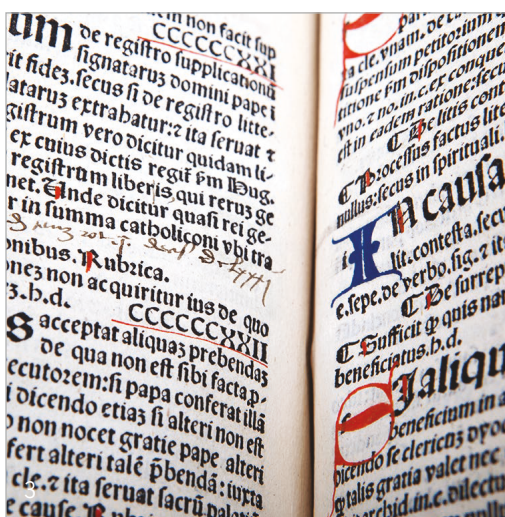 in non facit sup
CCCCCCXXI
um de registro supplicationū
signataruꝫ domini pape i
it fideꝫ.secus si de registro litte-
lataruꝫ extrahatur:⁊ ita seruat ⁊
gistrum vero dicitur quidam li-
ex cuius dictis regiſt̄ ẜm Hug.
registrum liberis, qui reruꝫ ge
net. Unde dicitur quasi rei ge-
r in summa catholiconi vbi tra
onibus. Rubrica.
oneꝫ non acquiritur ius de quo
ꝫ.h.d.
CCCCCCXXII
S acceptat aliquaꝫ prebendaꝫ
de qua non est sibi facta.p.-
ecutorem:si papa conferat illā
i dicendo etiaꝫ si alteri non est
o non nocet gratie pape alteri
fert alteri talē p̄bendā: iuxta
cle.⁊ ita seruat sacrū palati
e cause. R
3
par
ta cle.vnam.de
suspensum petitorium
titione ẜm dispositionem
vno.⁊ no.in.c.ex conque
est in eadem ratione:secu
De litis cont
Processus factus lite
nullus:secus in spirituali.
In causa
lit.contesta.secu
e.sepe.de verbo.sig.⁊ it
De surrep
Sufficit ꝙ quis nar
beneficiatus.h.d.
Si aliqu
beneficium in a
dicendo se clericuꝫ dyoc
ꝙ talis gratia valet nec
archid.in.c.dilectu